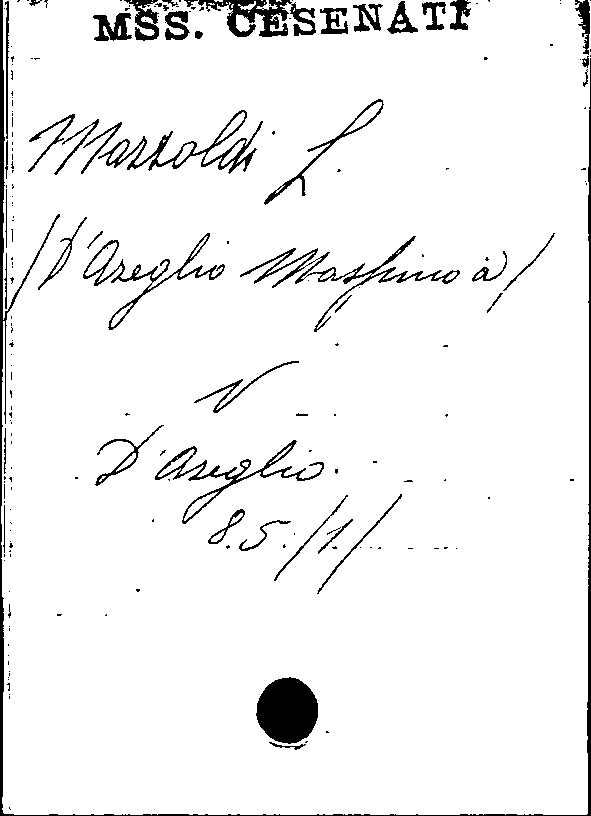 MSS. CESENATI
Mazzoldi L.
/D'Azeglio Massimo a/
V
D'Azeglio.
8.5./1/